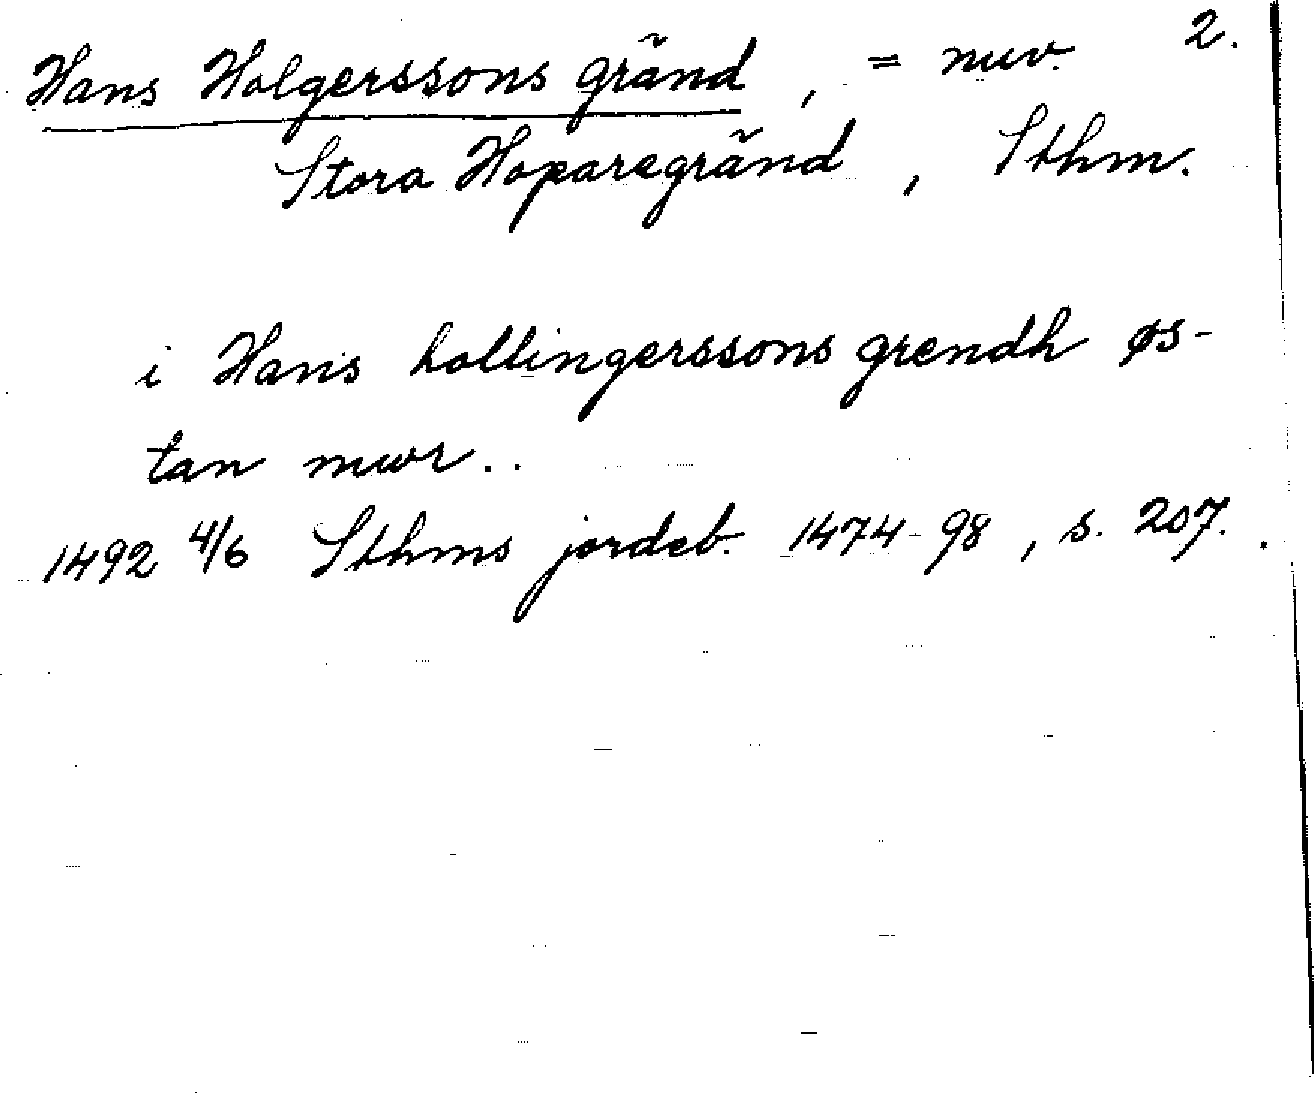 Hans Holgerssons gränd, = nuv. 2.
Stora Hoparegränd, Sthm.
i Hans hollingerssons grendh øs-
tan mwr..
1492 4/6 Sthms jordeb. 1474-98, s. 207.